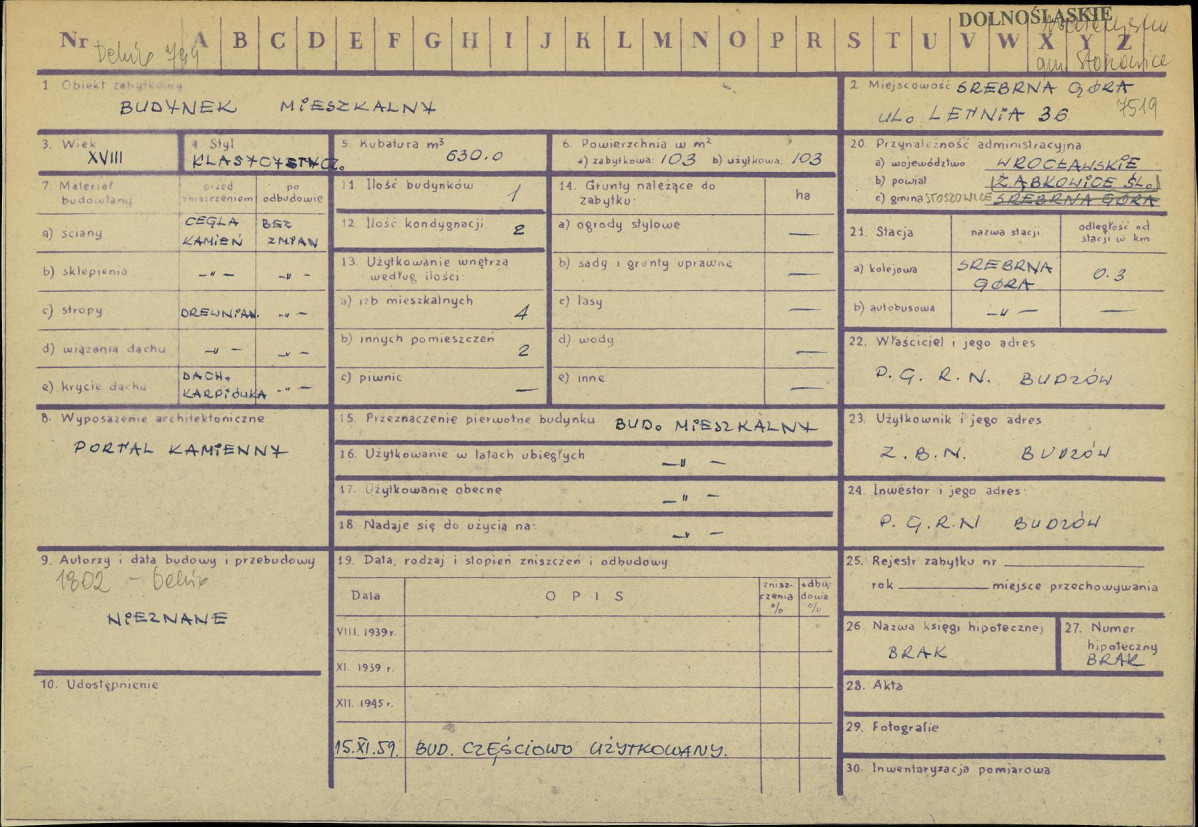 DOLNOŚLĄSKIE
Nr A B C D E F G H I J K L M N O P R S T U V W X Y Z
Dehio 799
1. Obiekt zabytkowy
BUDYNEK MIESZKALNY
2. Miejscowość SREBRNA GÓRA
UL. LETNIA 36
7519
3. Wiek
XVIII
4. Styl
KLASYCYSTYCZ.
5. Kubatura m³
630.0
6. Powierzchnia w m²
a) zabytkowa: 103 b) użytkowa: 103
7. Materiał budowlany
przed zniszczeniem
po odbudowie
a) ściany
CEGLA KAMIEŃ
BEZ ZMIAN
b) sklepienia
—"—
—"—
c) stropy
DREWNIAN.
—"—
d) wiązania dachu
—"—
—"—
e) krycie dachu
DACH. KARPIÓWKA
—"—
11. Ilość budynków
1
12. Ilość kondygnacji
2
13. Użytkowanie wnętrza
według ilości:
a) izb mieszkalnych
4
b) innych pomieszczeń
2
c) piwnic
—
14. Grunty należące do
zabytku:
ha
a) ogrody stylowe
—
b) sady i grunty uprawne
—
c) lasy
—
d) wody
—
e) inne
—
20. Przynależność administracyjna
a) województwo WROCŁAWSKIE
b) powiat ZĄBKOWICE ŚL.
c) gmina STOSZOWICE SREBRNA GÓRA
21. Stacja
nazwa stacji
odległość od
stacji w km
a) kolejowa
SREBRNA GÓRA
0.3
b) autobusowa
—"—
—
22. Właściciel i jego adres
P.G.R.N. BUDZÓW
8. Wyposażenie architektoniczne
PORTAL KAMIENNY
15. Przeznaczenie pierwotne budynku BUD. MIESZKALNY
16. Użytkowanie w latach ubiegłych
—"—
17. Użytkowanie obecne
—"—
18. Nadaje się do użycia na:
—"—
23. Użytkownik i jego adres
Z.B.N. BUDZÓW
24. Inwestor i jego adres:
P.G.R.N BUDZÓW
9. Autorzy i data budowy i przebudowy
1802 – Dehio
NIEZNANE
10. Udostępnienie
19. Data, rodzaj i stopień zniszczeń i odbudowy
Data
OPIS
znisz-
czenia
%
odbu-
dowa
%
VIII. 1939 r.
XI. 1939 r.
XII. 1945 r.
15.XI.59. BUD. CZĘŚCIOWO UŻYTKOWANY.
25. Rejestr zabytku nr
rok miejsce przechowywania
26. Nazwa księgi hipotecznej
BRAK
27. Numer
hipoteczny
BRAK
28. Akta
29. Fotografie
30. Inwentaryzacja pomiarowa